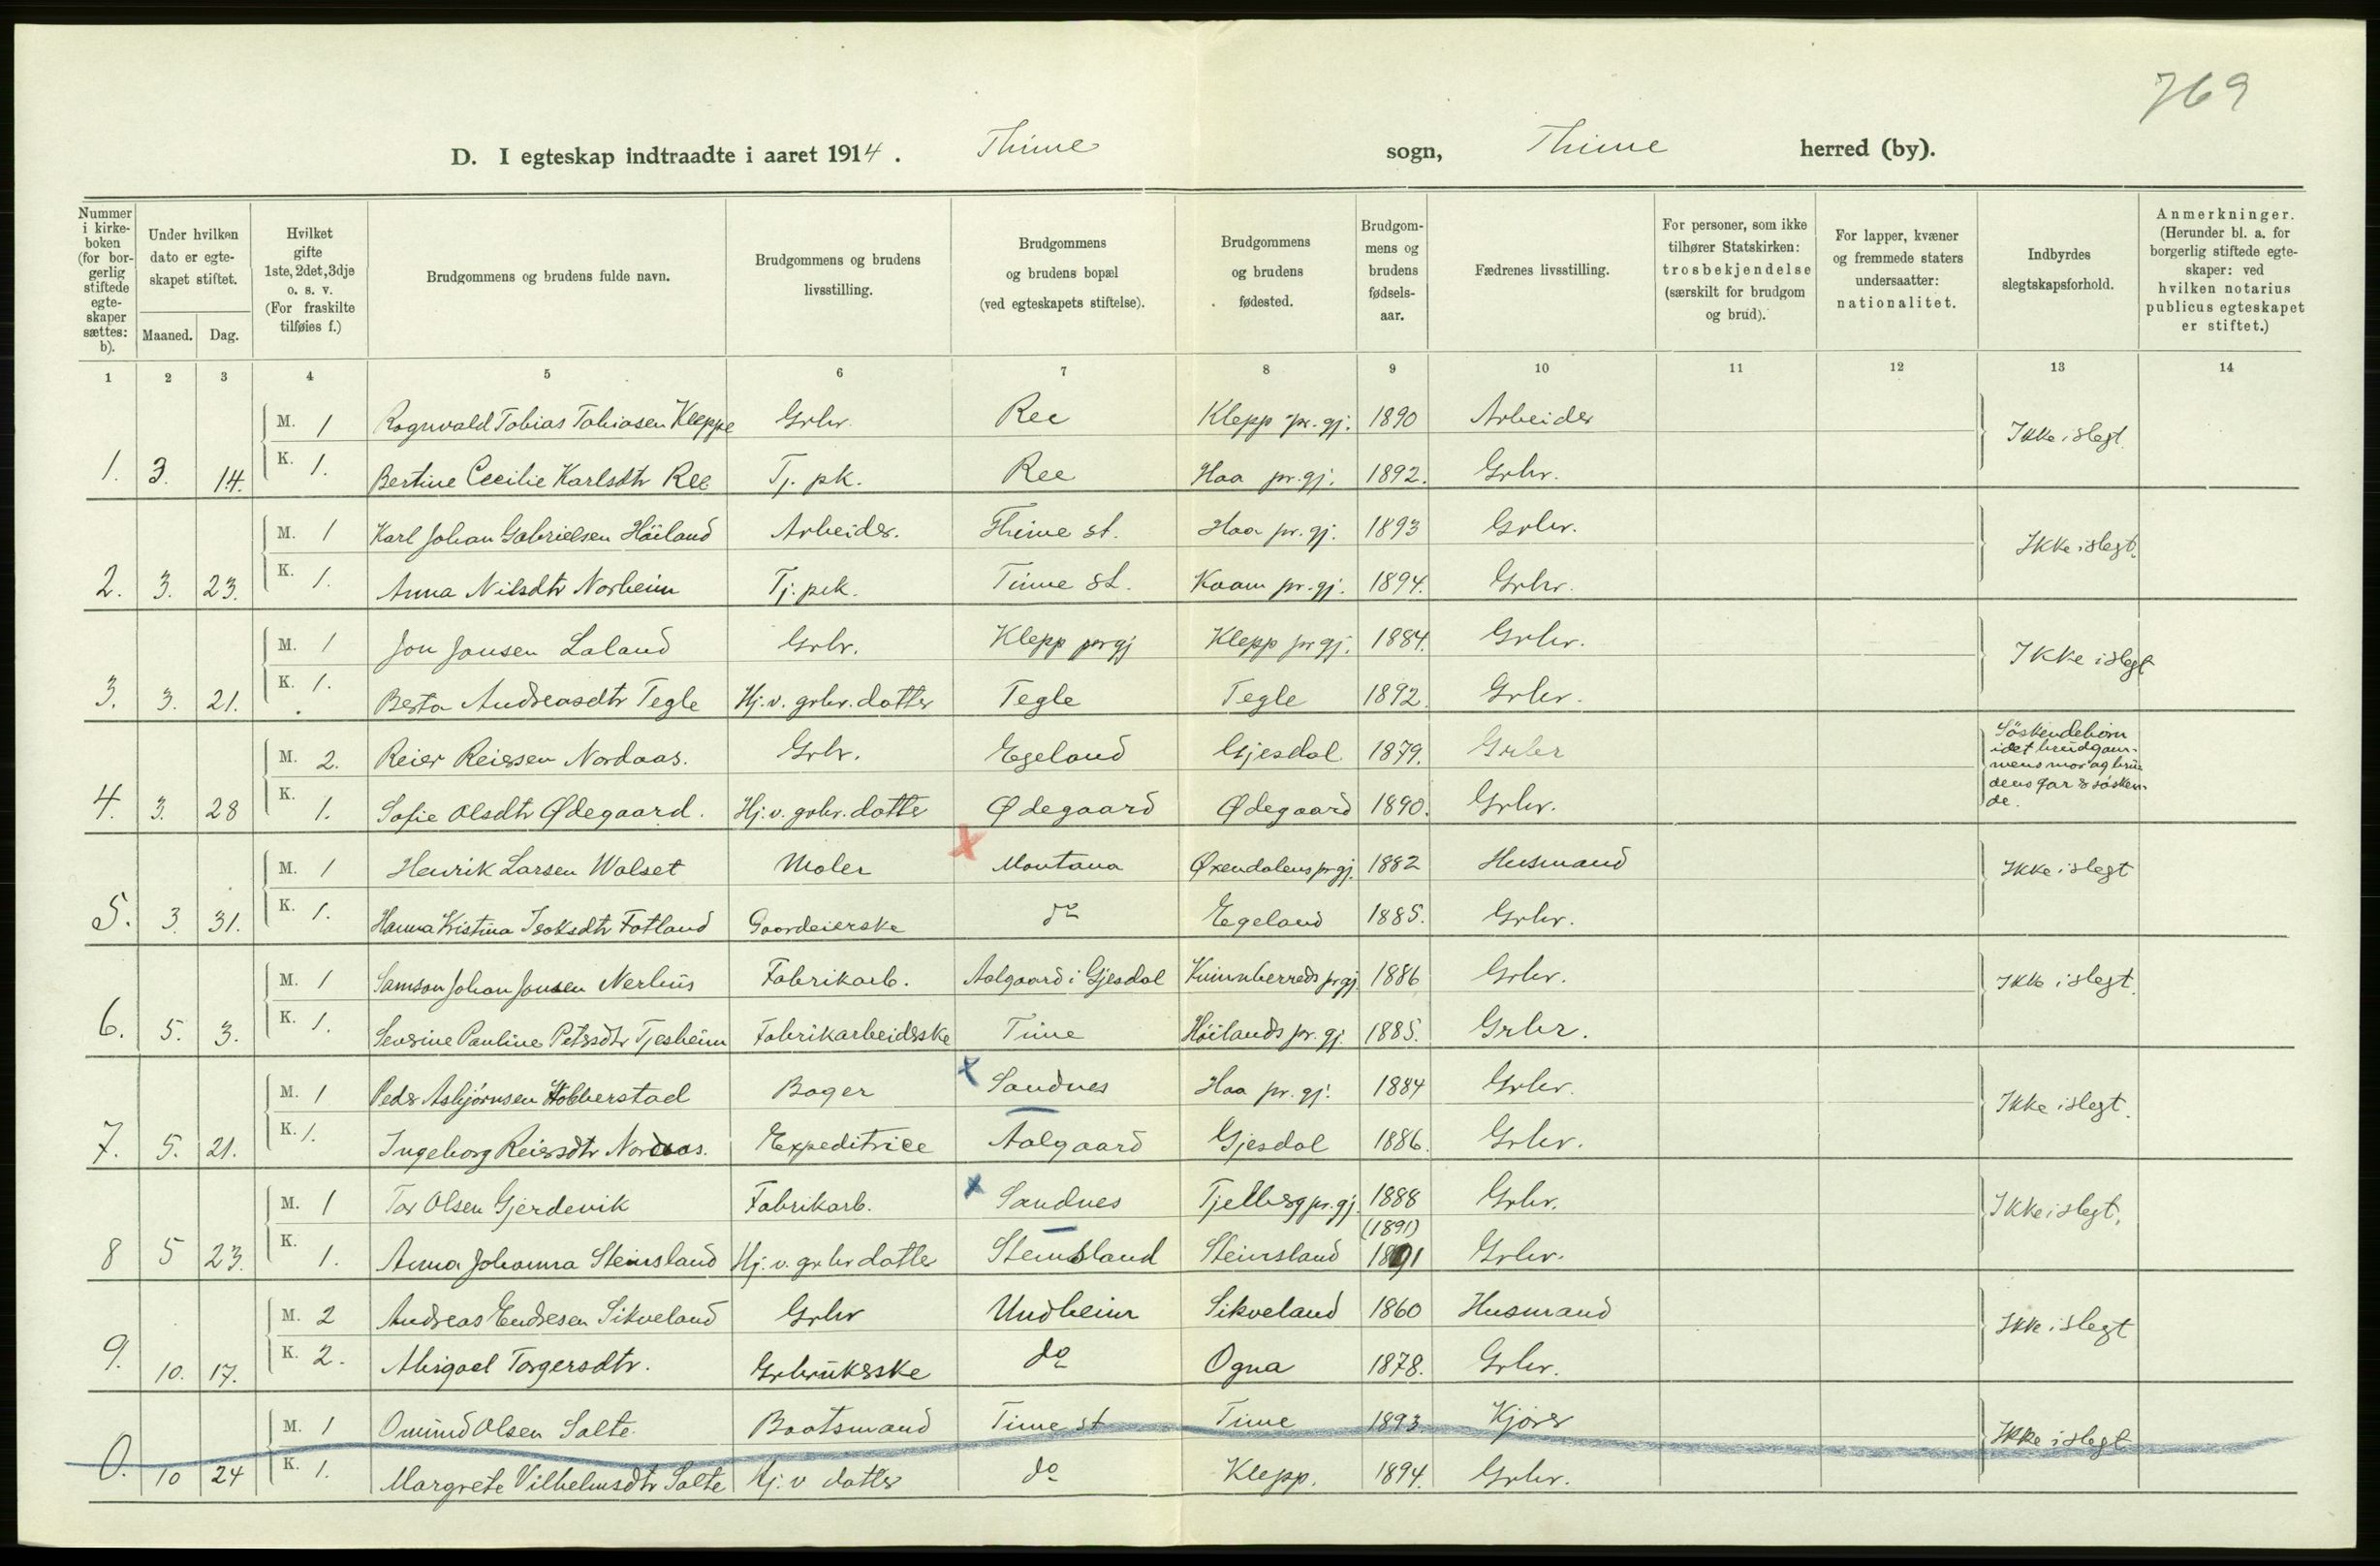 769
D. I egteskap indtraadte i aaret 1914. Thime sogn, Thime herred (by).
Nummer i kirke-boken (for bor-gerlig stiftede egte-skaper sættes: b).
Under hvilken dato er egte-skapet stiftet.
Maaned. Dag.
Hvilket gifte 1ste, 2det, 3dje o. s. v. (For fraskilte tilføies f.)
Brudgommens og brudens fulde navn.
Brudgommens og brudens livsstilling.
Brudgommens og brudens bopæl (ved egteskapets stiftelse).
Brudgommens og brudens fødested.
Brudgom-mens og brudens fødsels-aar.
Fædrenes livsstilling.
For personer, som ikke tilhører Statskirken: trosbekjendelse (særskilt for brudgom og brud).
For lapper, kvæner og fremmede staters undersaatter: nationalitet.
Indbyrdes slegtskapsforhold.
Anmerkninger. (Herunder bl. a. for borgerlig stiftede egte-skaper: ved hvilken notarius publicus egteskapet er stiftet.)
1 2 3 4 5 6 7 8 9 10 11 12 13 14
M. 1 Ragnvald Tobias Tobiasen Kleppe Grbr. Ree Klepp pr.gj. 1890 Arbeider Ikke i slegt
1. 3. 14. K. 1. Bertine Cecilie Karlsdtr Ree Tj. pk. Ree Haa pr.gj. 1892. Grbr.
M. 1 Karl Johan Gabrielsen Höiland Arbeider. Thime st. Haa pr.gj. 1893 Grbr. Ikke i slegt.
2. 3. 23. K. 1. Anna Nilsdtr Norheim Tj. pik. Time st. Kaam pr.gj. 1894. Grbr.
M. 1 Jon Jonsen Laland Grbr. Klepp prgj Klepp prgj. 1884. Grbr. Ikke i slegt
3. 3. 21. K. 1. Berta Andreasdtr Tegle Hj. v. grbr. datter Tegle Tegle 1892. Grbr.
M. 2. Reier Reiersen Nordaas. Grbr. Egeland Gjesdal 1879. Grbr Söskendebörn idet brudgom-mens mor og bru-dens far er sösken-de.
4. 3. 28 K. 1. Sofie Olsdtr Ødegaard. Hj. v. grbr. datter Ødegaard Ødegaard 1890. Grbr.
M. 1 Henrik Larsen Walset Maler x Montana Øxendalens prgj. 1882 Husmand Ikke i slegt
5. 3. 31. K. 1. Hanna Kristina Isaksdtr Fotland Gaardeierske do Egeland 1885. Grbr.
M. 1 Samson Johan Jonsen Nerhus Fabrikarb. Aalgaard i Gjesdal Kvinnherreds prgj. 1886 Grbr. Ikke i slegt.
6. 5. 3. K. 1. Severine Pauline Petersdtr Tjesheim Fabrikarbeiderske Time Höilands pr.gj. 1885. Grbr.
M. 1 Peder Asbjörnsen Hobberstad Bager x Sandnes Haa pr.gj. 1884 Grbr. Ikke i slegt.
7. 5. 21. K. 1. Ingeborg Reiersdtr Nordaas. Expeditrice Aalgaard Gjesdal 1886. Grbr.
M. 1 Tor Olsen Gjerdevik Fabrikarb. x Sandnes Tjelberg pr.gj. 1888 Grbr. Ikke i slegt.
(1891)
8 5 23. K. 1. Anna Johanna Steinsland Hj. v. grbr datter Steinsland Steinsland 1891 Grbr.
M. 2 Andreas Endresen Sikveland Grbr Undheim Sikveland 1860 Husmand Ikke i slegt
9. 10. 17. K. 2. Abigael Torgersdtr. Grbrukerske do Ogna 1878. Grbr.
M. 1 Omund Olsen Salte. Baatsmand Time st Time 1893. Kjörer Ikke i slegt
0. 10 24 K. 1. Margrete Vilhelmsdtr Salte Hj. v datter do Klepp. 1894. Grbr.